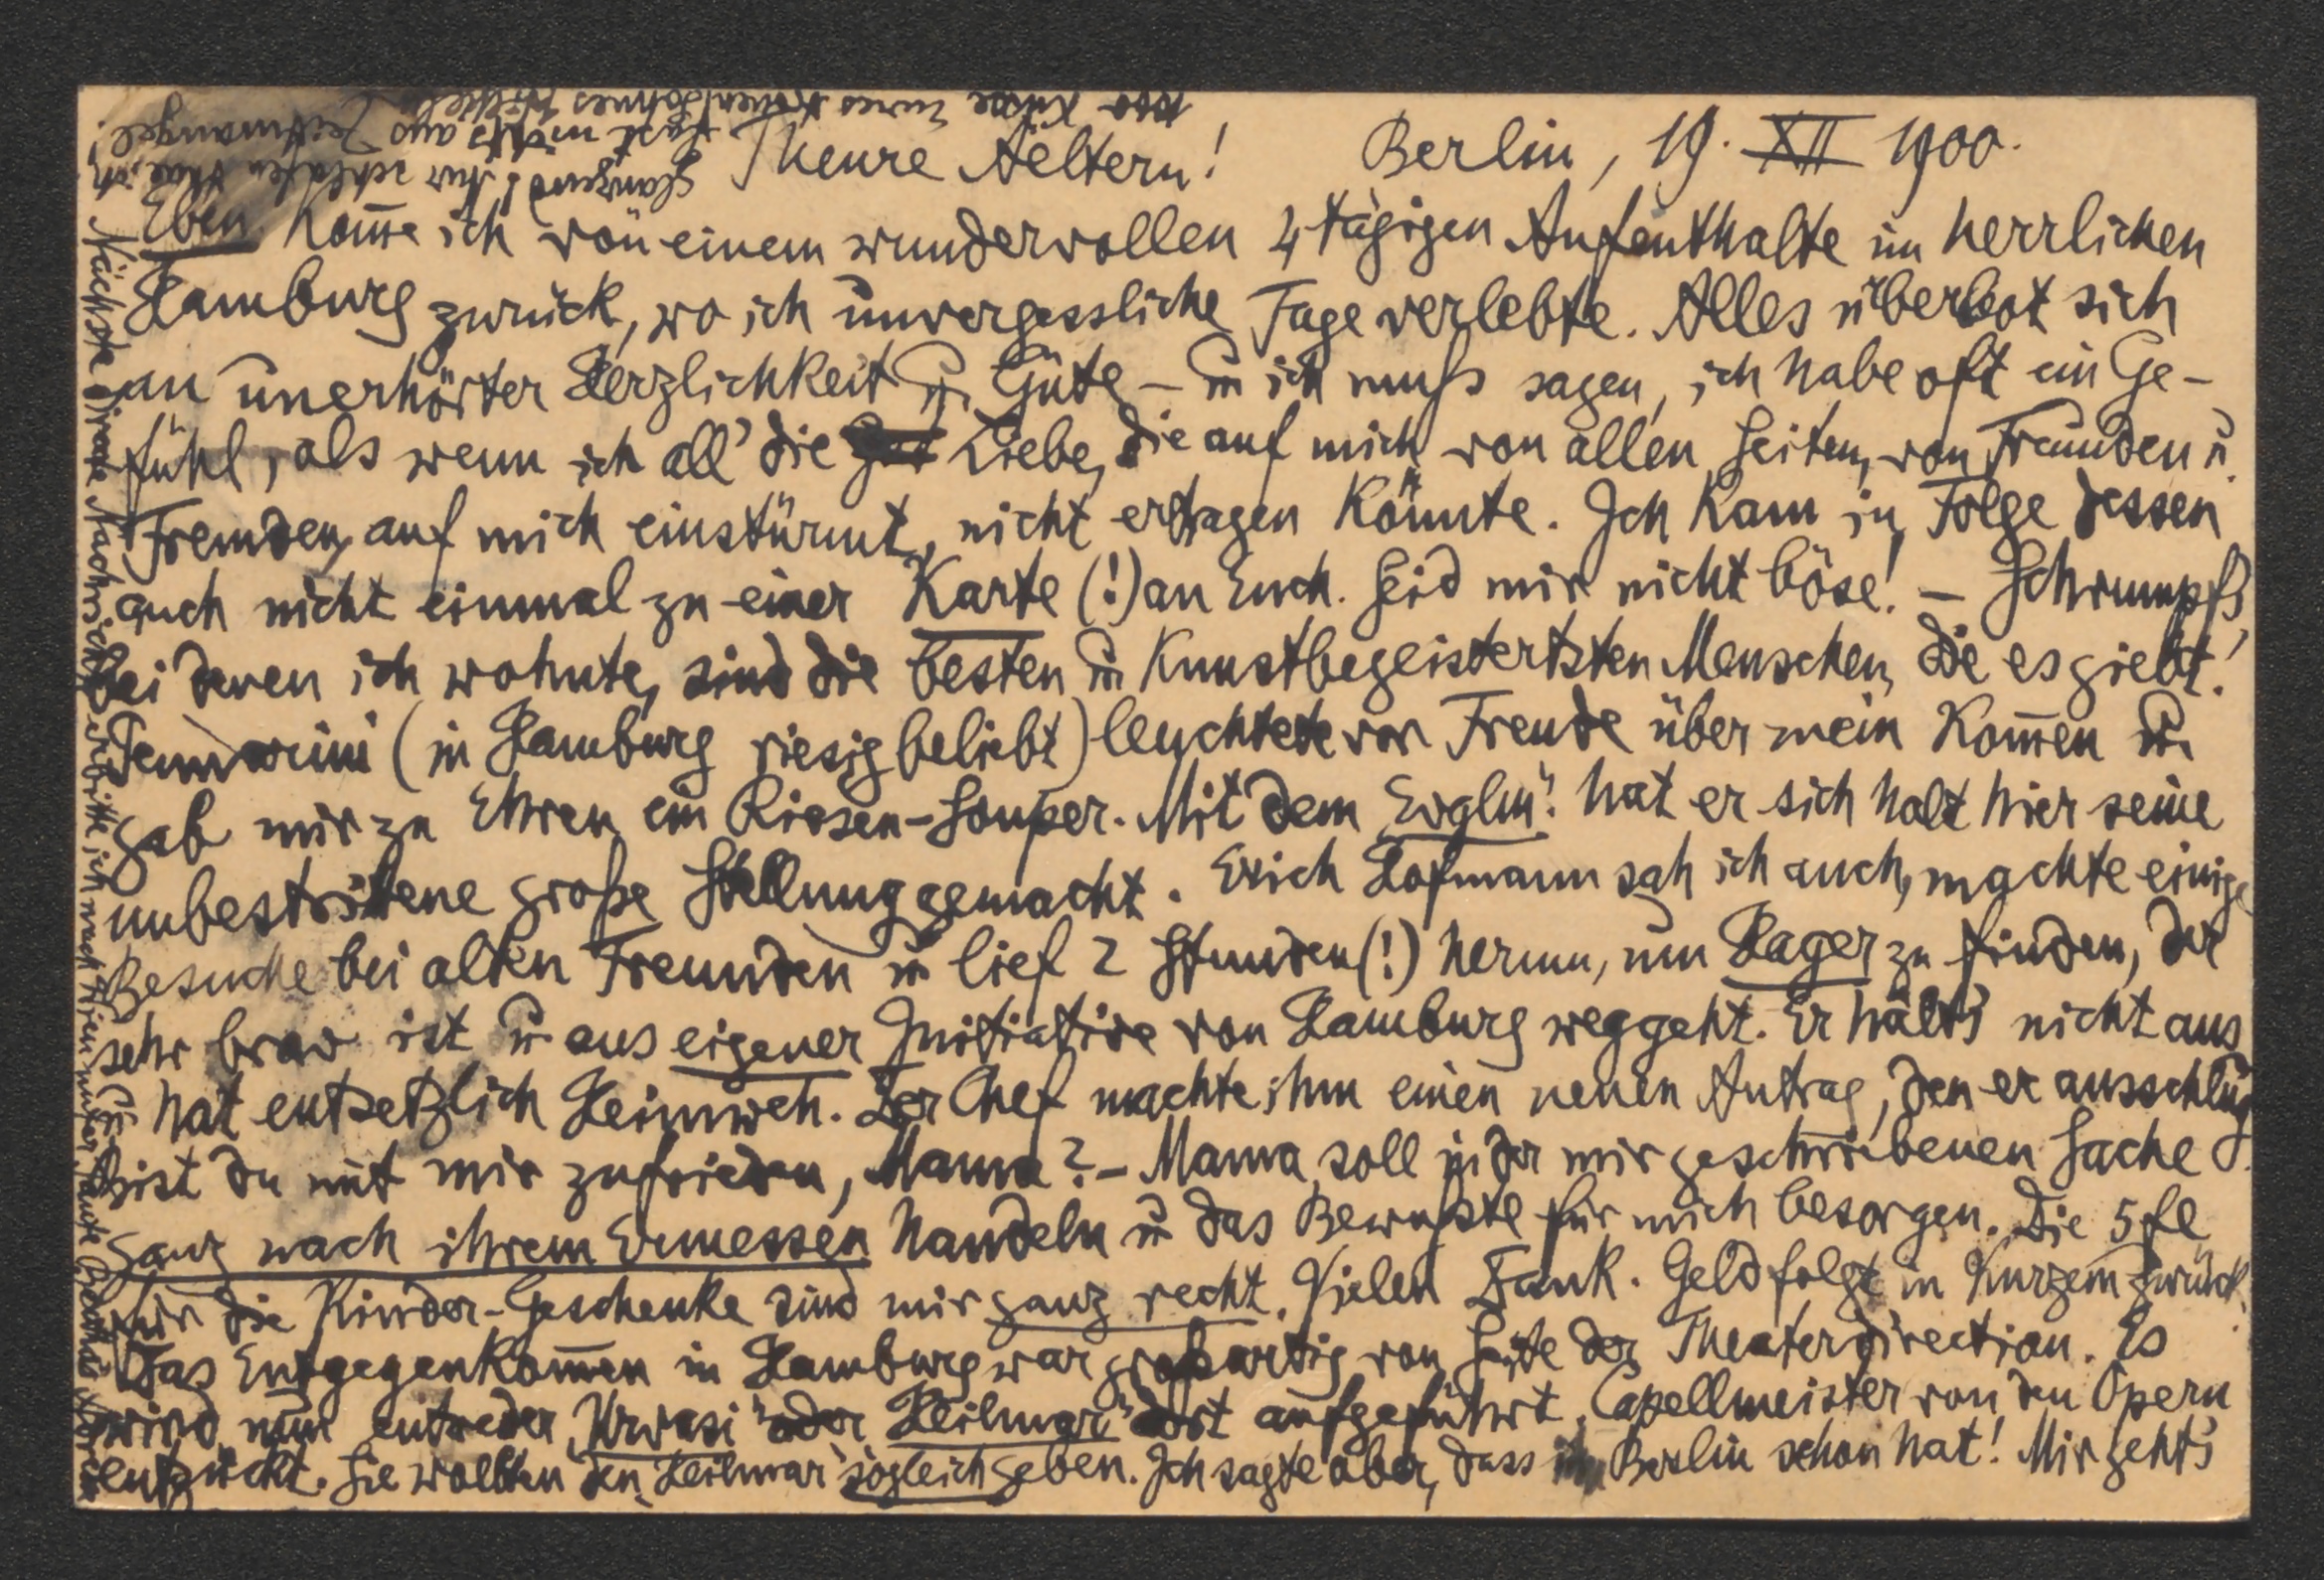 Theure Aeltern! Berlin, 19. XII 1900.
Eben komme ich von einem wundervollen 4 tägigen Aufenthalte im herrlichen
Hamburg zurück, wo ich unvergessliche Tage verlebte. Alles überbot sich
an unerhörter Herzlichkeit u. Güte – u ich muß sagen, ich habe oft ein Ge-
fühl, als wenn ich all' die Liebe, die auf mich von allen Seiten, von Freunden u.
Fremden, auf mich einstürmt, nicht ertragen könnte. Ich kam in Folge dessen
auch nicht einmal zu einer Karte (!) an Euch. Seid mir nicht böse! – Schrumpfs
bei denen ich wohnte, sind die besten u Kunstbegeistertsten Menschen, die es giebt!
(in Hamburg riesig beliebt) leuchtete vor Freude über mein Kommen u.
gab mir zu Ehren ein Riesen-Souper. Mit dem „Evglm" hat er sich halt hier seine
unbestrittene große Stellung gemacht. Erich Hofmann sah ich auch, machte einige
Besuche bei alten Freunden u lief 2 Stunden (!) herum, um Hager zu finden, der
sehr brav ist u aus eigener Initiative von Hamburg weggeht. Er hält's nicht aus
u. hat entsetzlich Heimweh. Der Chef machte ihm einen neuen Antrag, den er ausschlug.
Bist du mit mir zufrieden, Mama? – Mama soll in der mir geschriebenen Sache
ganz nach ihrem Ermessen handeln u das Bewußte für mich besorgen. Die 5 fl
für die Kinder-Geschenke sind mir ganz recht. Vielen Dank. Geld folgt in Kurzem zurück.
Das Entgegenkommen in Hamburg war großartig von Seite der Theaterdirection. Es
wird nun entweder „Urvasi" oder „Heilmar" dort aufgeführt. Capellmeister von den Opern
entzückt. Sie wollten den „Heilmar" sogleich geben. Ich sagte aber, dass ihn Berlin schon hat! Mir geht's
glänzend! Nur schlafen thue ich
fast nichts aus Zeitmangel!
1000 Küsse Eures treuen Sohnes Wilhelm
Nächste Nachricht erbitte ich nach Wien